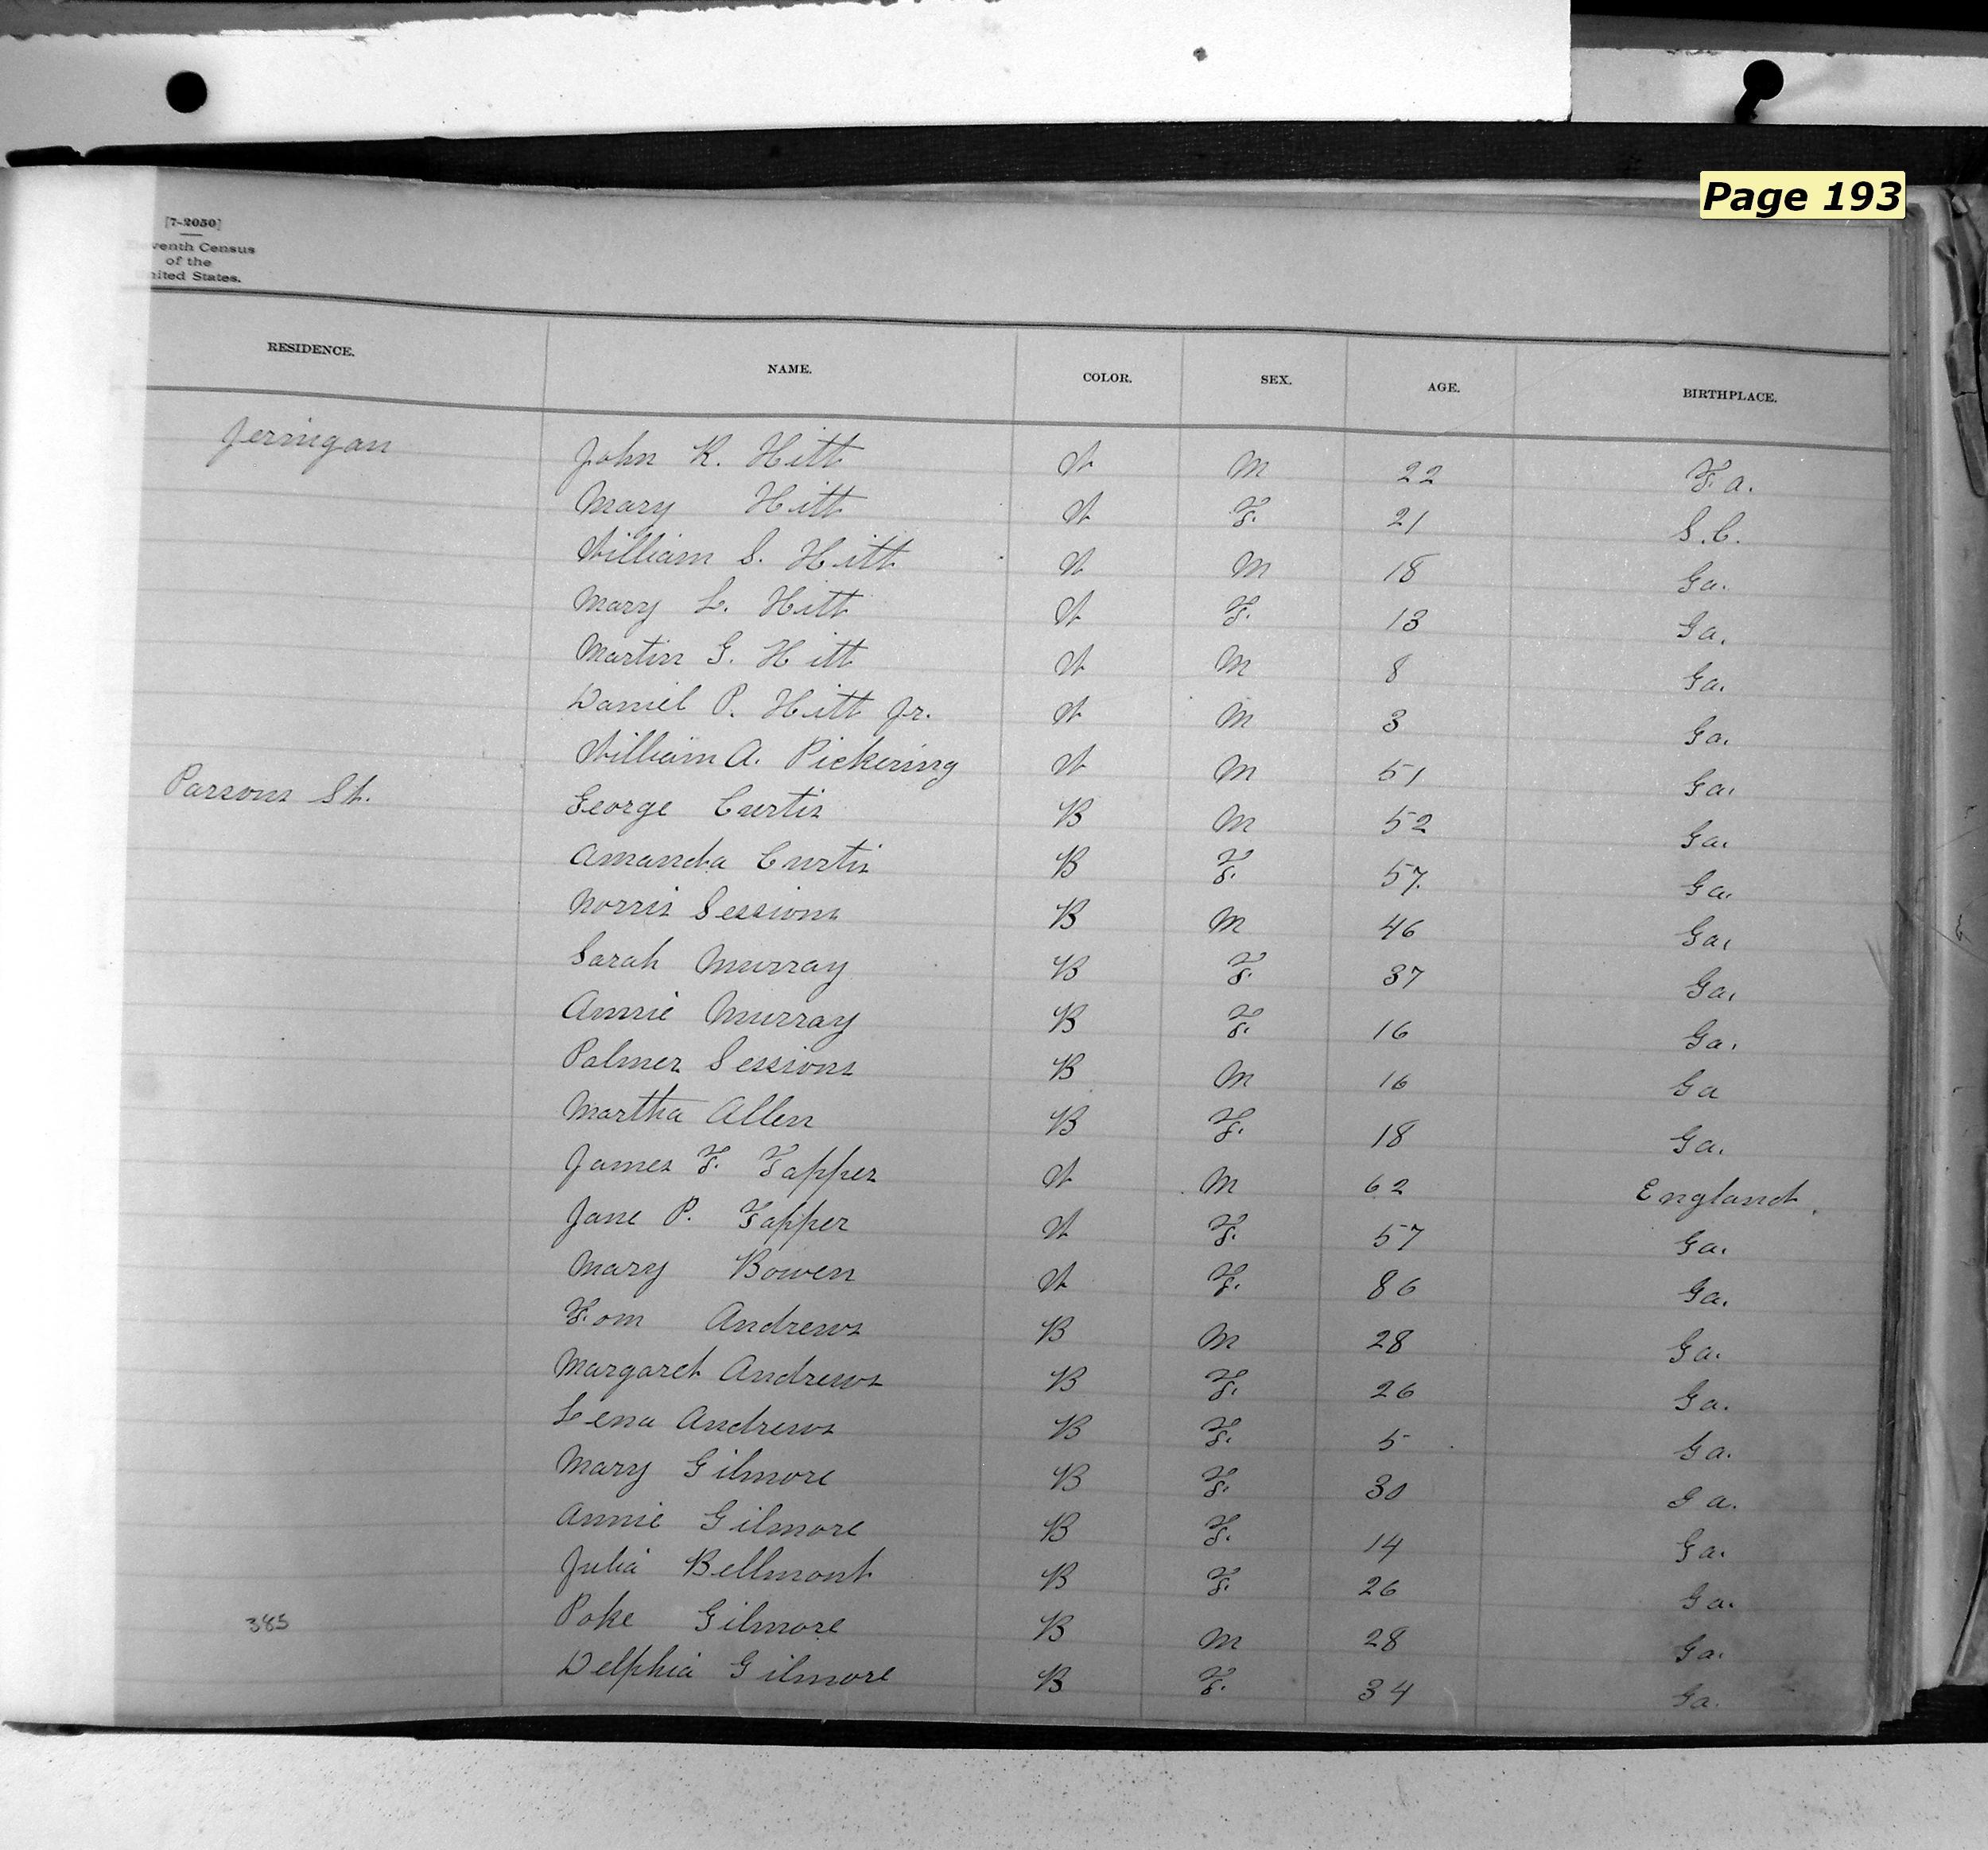 Page 193
[7-2050]
venth Census
of the
nited States.
RESIDENCE. NAME. COLOR. SEX. AGE. BIRTHPLACE.
Jernigan John K. Hitt W M 22 Fa.
Mary Hitt W F. 21 S.C.
William S. Hitt W M 18 Ga.
Mary L. Hitt W F. 13 Ga.
Martin G. Hitt W M 8 Ga.
Daniel P. Hitt Jr. W M 3 Ga.
William A. Pickering W M 51 Ga.
Parsons St. George Curtis B M 52 Ga.
Amanda Curtis B F. 57. Ga.
Norris Sessions B M 46 Ga.
Sarah Murray B F. 37 Ga.
Annie Murray B F. 16 Ga.
Palmer Sessions B M 16 Ga
Martha Allen B F. 18 Ga.
James T. Tapper W M 62 England.
Jane P. Tapper W F. 57 Ga.
Mary Bowen W F. 86 Ga.
Tom Andrews B M 28 Ga.
Margaret Andrews B F. 26 Ga.
Lena Andrews B F. 5 Ga.
Mary Gilmore B F. 30 Ga.
Annie Gilmore B F. 14 Ga.
Julia Bellmont B F. 26 Ga.
385 Poke Gilmore B M 28 Ga.
Delphia Gilmore B F. 34 Ga.